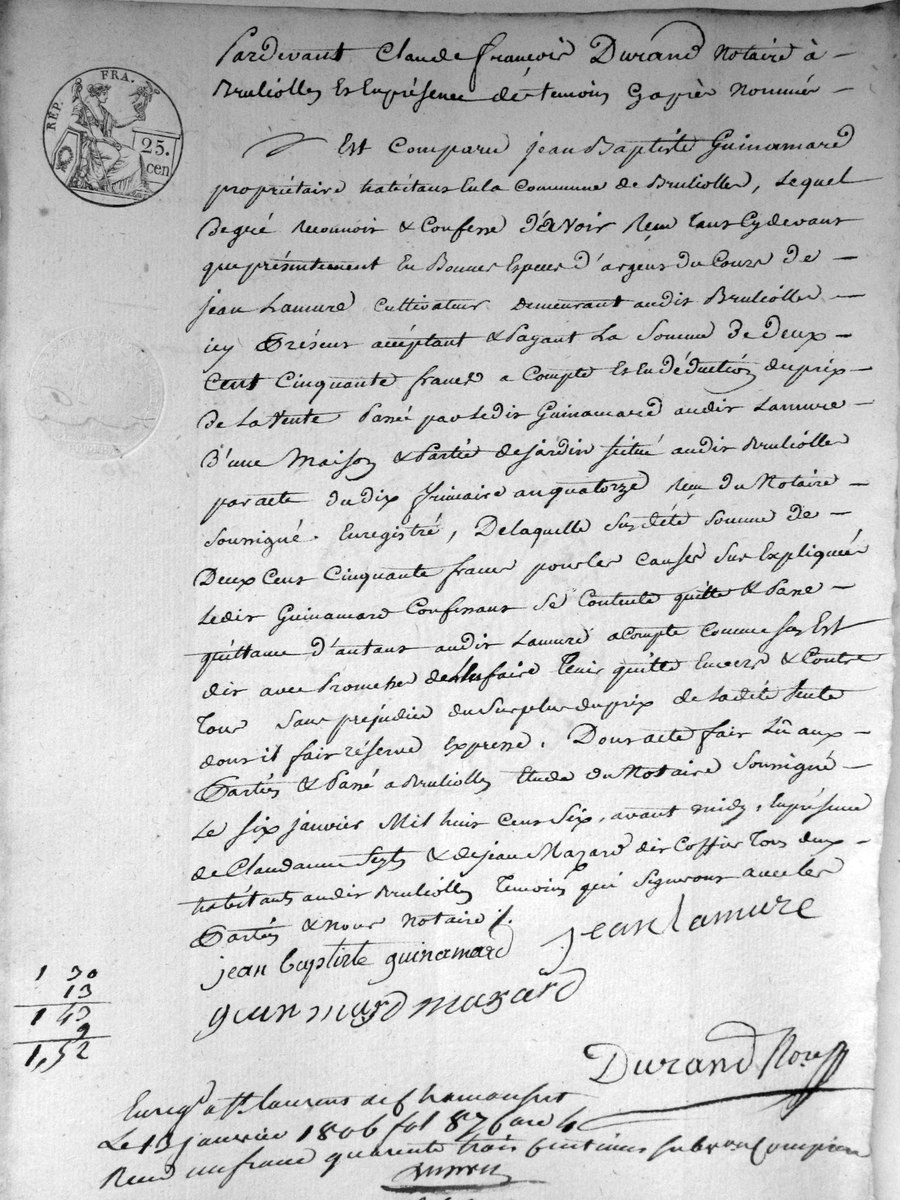 RÉP. FRA.
25. cen
Pardevant Claude françois Durand Notaire à
Brulliolles Et Enprésence des temoins Gaprès Nommés
Est Comparu jean Baptiste Guinamard
propriétaire habitans Enla Commune de Brulliolles, Lequel
Degré reconnois & Confesse D'avoir Reçu tans Cydevans
que présentement En Bonnes Especes d'argens du Cours De
jean Lamure Cultivateur Demeurant audis Brulliolles
icy Présens accéptant & Payant La Somme De Deux
Cent Cinquante francs a Compte Et En Déduction, du prix
De La Vente Passé par Ledis Guinamard audis Lamure
D'une Maison & Partie de jardin situé audis Brulliolles
par acte du dix frimaire an quatorze Reçu du Notaire
Soussigné. Enregistré, De laquelle Susdité Somme De
Deux Cens Cinquante francs pour les Causes Sus Expliquées
Ledis Guinamard Confessans Se Contente quitte & Passe
quittance d'autans audis Lamure acompte Comme Sus Est
dis avec Promesse de L'en faire Tenir quitte Envers & Contre
Tous Sans préjudice du Surplus du prix de Ladité Vente
dons il fais réserve Expresse. Dons acte fais Lû aux
Partiés & Passé a Brulliolles Etude du Notaire Soussigné
Le Six janvier Mil huis Cens Six, avant midy, Enprésence
de Claudanne & de jean Mazard dis Coffier Tous deux
habitans audis Brulliolles Temoins qui Signerons avec les
Partiés & Nous Notaire
jean baptiste guinamard jean lamure
mazard
Durand Nore
1 30
13
1 43
9
1,52
Enregé a St. laurens de Chamousset
Le 13 janvier 1806 fol 87
Reçu un franc quarente trois Centimes Subvon Comprise